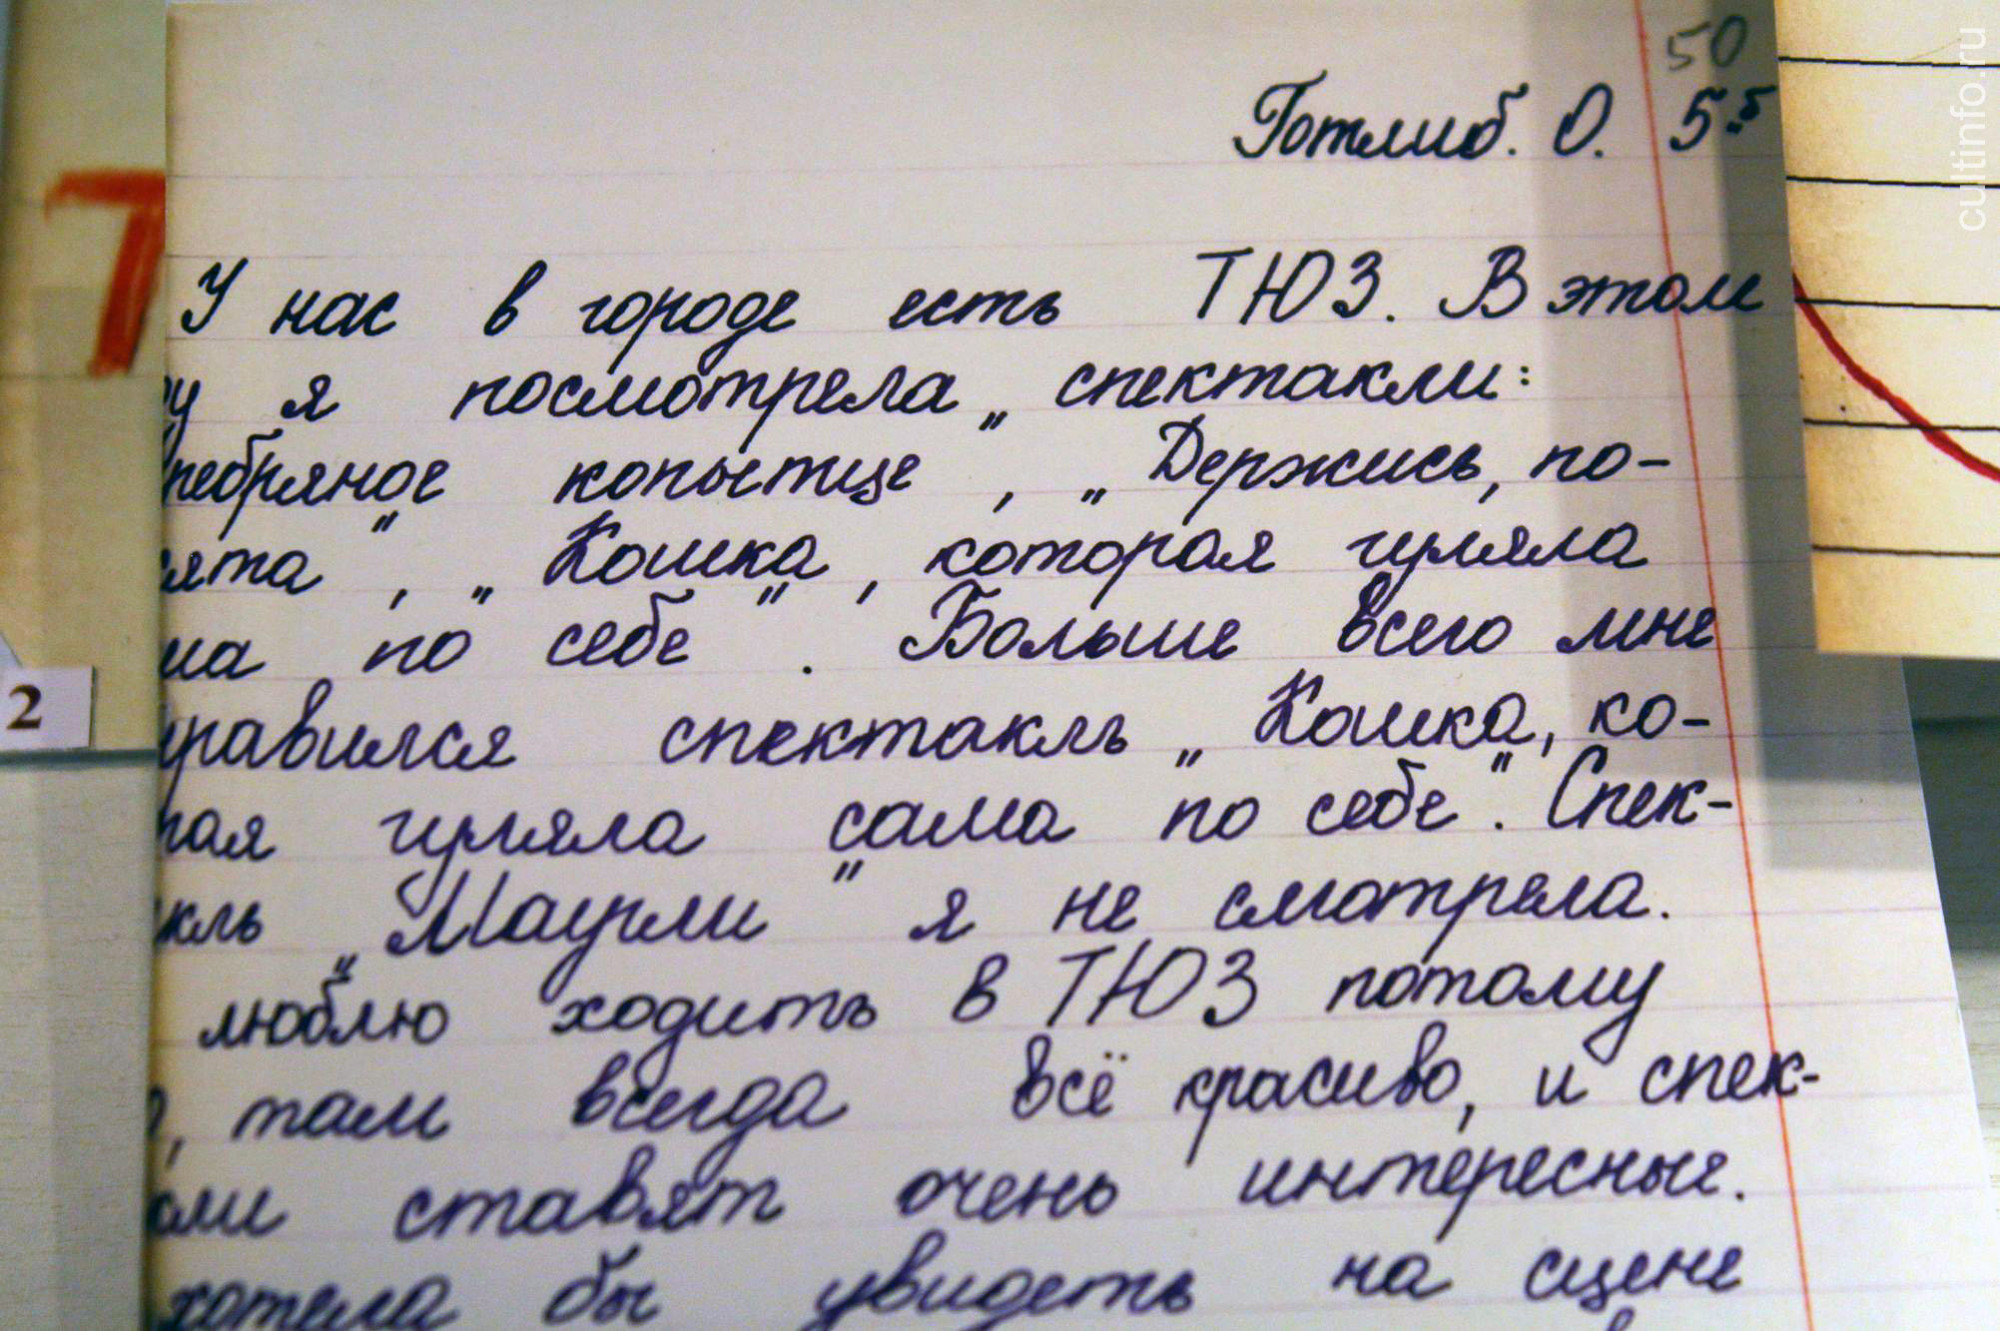 50
Готлиб. О. 5 б
У нас в городе есть ТЮЗ. В этом
я посмотрела спектакли:
ребряное копытце", „Держись, по-
ята", „Кошка, которая гуляла
ма по себе". Больше всего мне
нравился спектакль „Кошка, ко-
рая гуляла сама по себе". Спек-
кль „Маугли" я не смотрела.
люблю ходить в ТЮЗ потому
, там всегда всё красиво, и спек-
ставят очень интересные.
хотела бы увидеть на сцене
7
2
cultinfo.ru